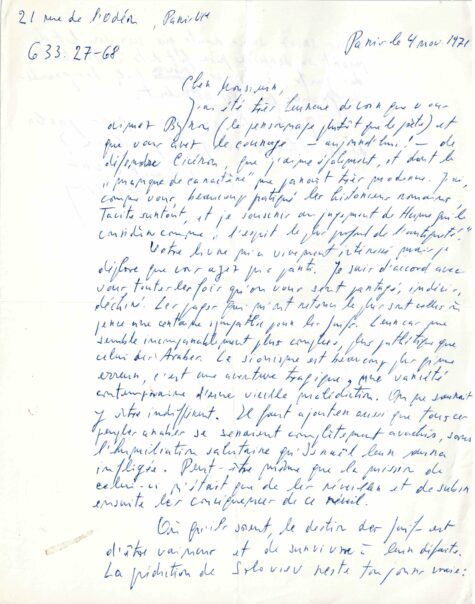 21 rue de l'Odéon, Paris VIe
633.27-68
Paris le 4 nov. 1971
Cher Monsieur,
J'ai été très heureux de voir que vous
aimez Byron (le personnage plutôt que le poète) et
que vous avez le courage — aujourd'hui! — de
défendre Cicéron, que j'aime également, et dont le
"manque de caractère" me paraît très moderne. J'ai,
comme vous, beaucoup pratiqué les historiens romains,
Tacite surtout, et je souscris au jugement de Hume qui le
considère comme "l'esprit le plus profond de l'antiquité".
Votre livre m'a vivement intéressé mais je
déplore que vous ayez pris parti. Je suis d'accord avec
vous toutes les fois qu'on vous sent partagé, indécis,
déchiré. Les pages qui m'ont retenu le plus sont celles où
perce une certaine sympathie pour les Juifs. Leur cas me
semble incomparablement plus complexe, plus pathétique que
celui des Arabes. Le sionisme est beaucoup plus qu'une
erreur, c'est une aventure tragique, une variété
contemporaine d'une vieille malédiction. On ne saurait
y être indifférent. Il faut ajouter aussi que tous ces
peuples arabes se seraient complètement avachis, sans
l'humiliation salutaire qu'Israël leur aura
infligée. Peut-être même que la mission de
celui-ci n'était que de les réveiller et de subir
ensuite les conséquences de ce réveil.
Où qu'ils soient, le destin des Juifs est
d'être vainqueur et de survivre à leur défaite.
La prédiction de Soloviev reste toujours vraie: